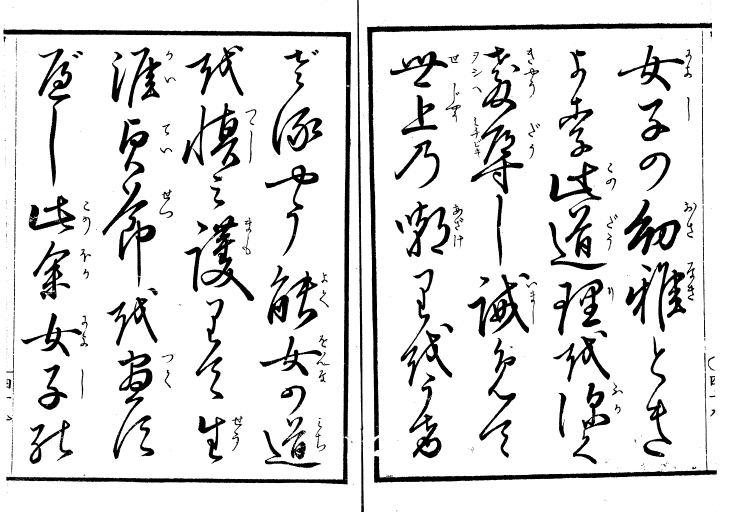 女子の幼稚とき
より此道理を深く
教導し誡めて
世上の嘲りをうけ
ざるやう能女の道
を慎み護りて生
涯貞節を尽す
べし此余女子の